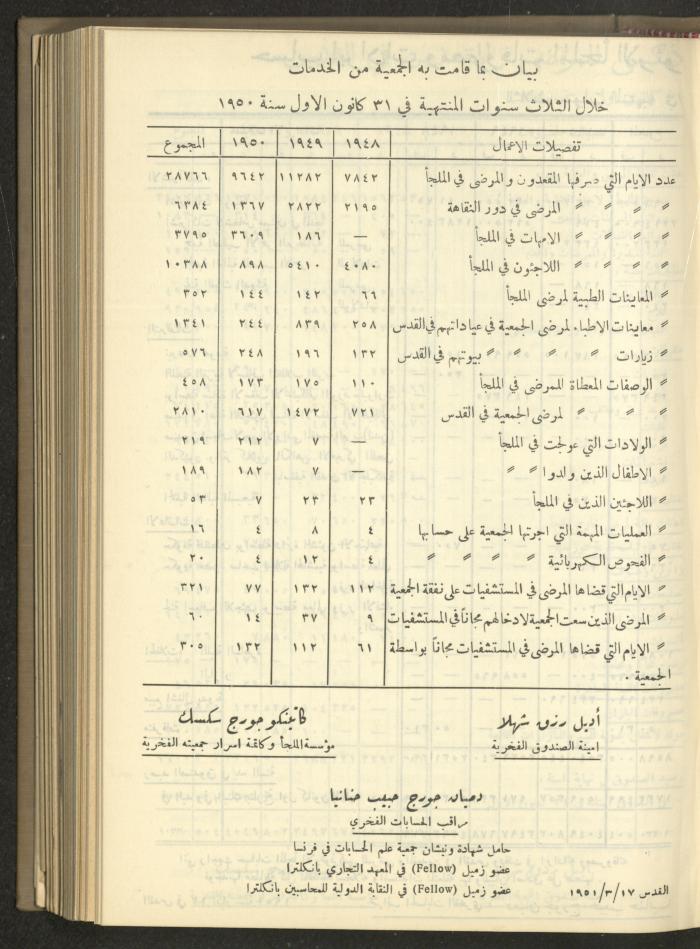 بيان بما قامت به الجمعية من الخدمات
خلال الثلاث سنوات المنتهية في ٣١ كانون الاول سنة ١٩٥٠
تفصيلات الاعمال ١٩٤٨ ١٩٤٩ ١٩٥٠ المجموع
عدد الايام التي صرفها المقعدون والمرضى في الملجأ ٧٨٤٢ ١١٢٨٢ ٩٦٤٢ ٢٨٧٦٦
〃 〃 〃 〃 المرضى في دور النقاهة ٢١٩٥ ٢٨٢٢ ١٣٦٧ ٦٣٨٤
〃 〃 〃 〃 الامهات في الملجأ — ١٨٦ ٣٦٠٩ ٣٧٩٥
〃 〃 〃 〃 اللاجئون في الملجأ ٤٠٨٠ ٥٤١٠ ٨٩٨ ١٠٣٨٨
〃 المعاينات الطبية لمرضى الملجأ ٦٦ ١٤٢ ١٤٤ ٣٥٢
〃 معاينات الاطباء لمرضى الجمعية في عياداتهم في القدس ٢٥٨ ٨٣٩ ٢٤٤ ١٣٤١
〃 زيارات 〃 〃 〃 〃 بيوتهم في القدس ١٣٢ ١٩٦ ٢٤٨ ٥٧٦
〃 الوصفات المعطاة للمرضى في الملجأ ١١٠ ١٧٥ ١٧٣ ٤٥٨
〃 〃 〃 لمرضى الجمعية في القدس ٧٢١ ١٤٧٢ ٦١٧ ٢٨١٠
〃 الولادات التي عولجت في الملجأ — ٧ ٢١٢ ٢١٩
〃 الاطفال الذين ولدوا 〃 〃 — ٧ ١٨٢ ١٨٩
〃 اللاجئين الذين في الملجأ ٢٣ ٢٣ ٧ ٥٣
〃 العمليات المهمة التي اجرتها الجمعية على حسابها ٤ ٨ ٤ ١٦
〃 الفحوص الكهربائية 〃 〃 〃 〃 ٤ ١٢ ٤ ٢٠
〃 الايام التي قضاها المرضى في المستشفيات على نفقة الجمعية ١١٢ ١٣٢ ٧٧ ٣٢١
〃 المرضى الذين سعت الجمعية لادخالهم مجاناً في المستشفيات ٩ ٣٧ ١٤ ٦٠
〃 الايام التي قضاها المرضى في المستشفيات مجاناً بواسطة ٦١ ١١٢ ١٣٢ ٣٠٥
الجمعية .
أديل رزق شهلا
امينة الصندوق الفخرية
كاتينكو جورج سكسك
مؤسسة الملجأ وكاتمة اسرار جمعيته الفخرية
دميان جورج حبيب حنانيا
مراقب الحسابات الفخري
حامل شهادة ونيشان جمعية علم الحسابات في فرنسا
عضو زميل (Fellow) في المعهد التجاري بانكلترا
عضو زميل (Fellow) في النقابة الدولية للمحاسبين بانكلترا
القدس ١٧/٣/١٩٥١